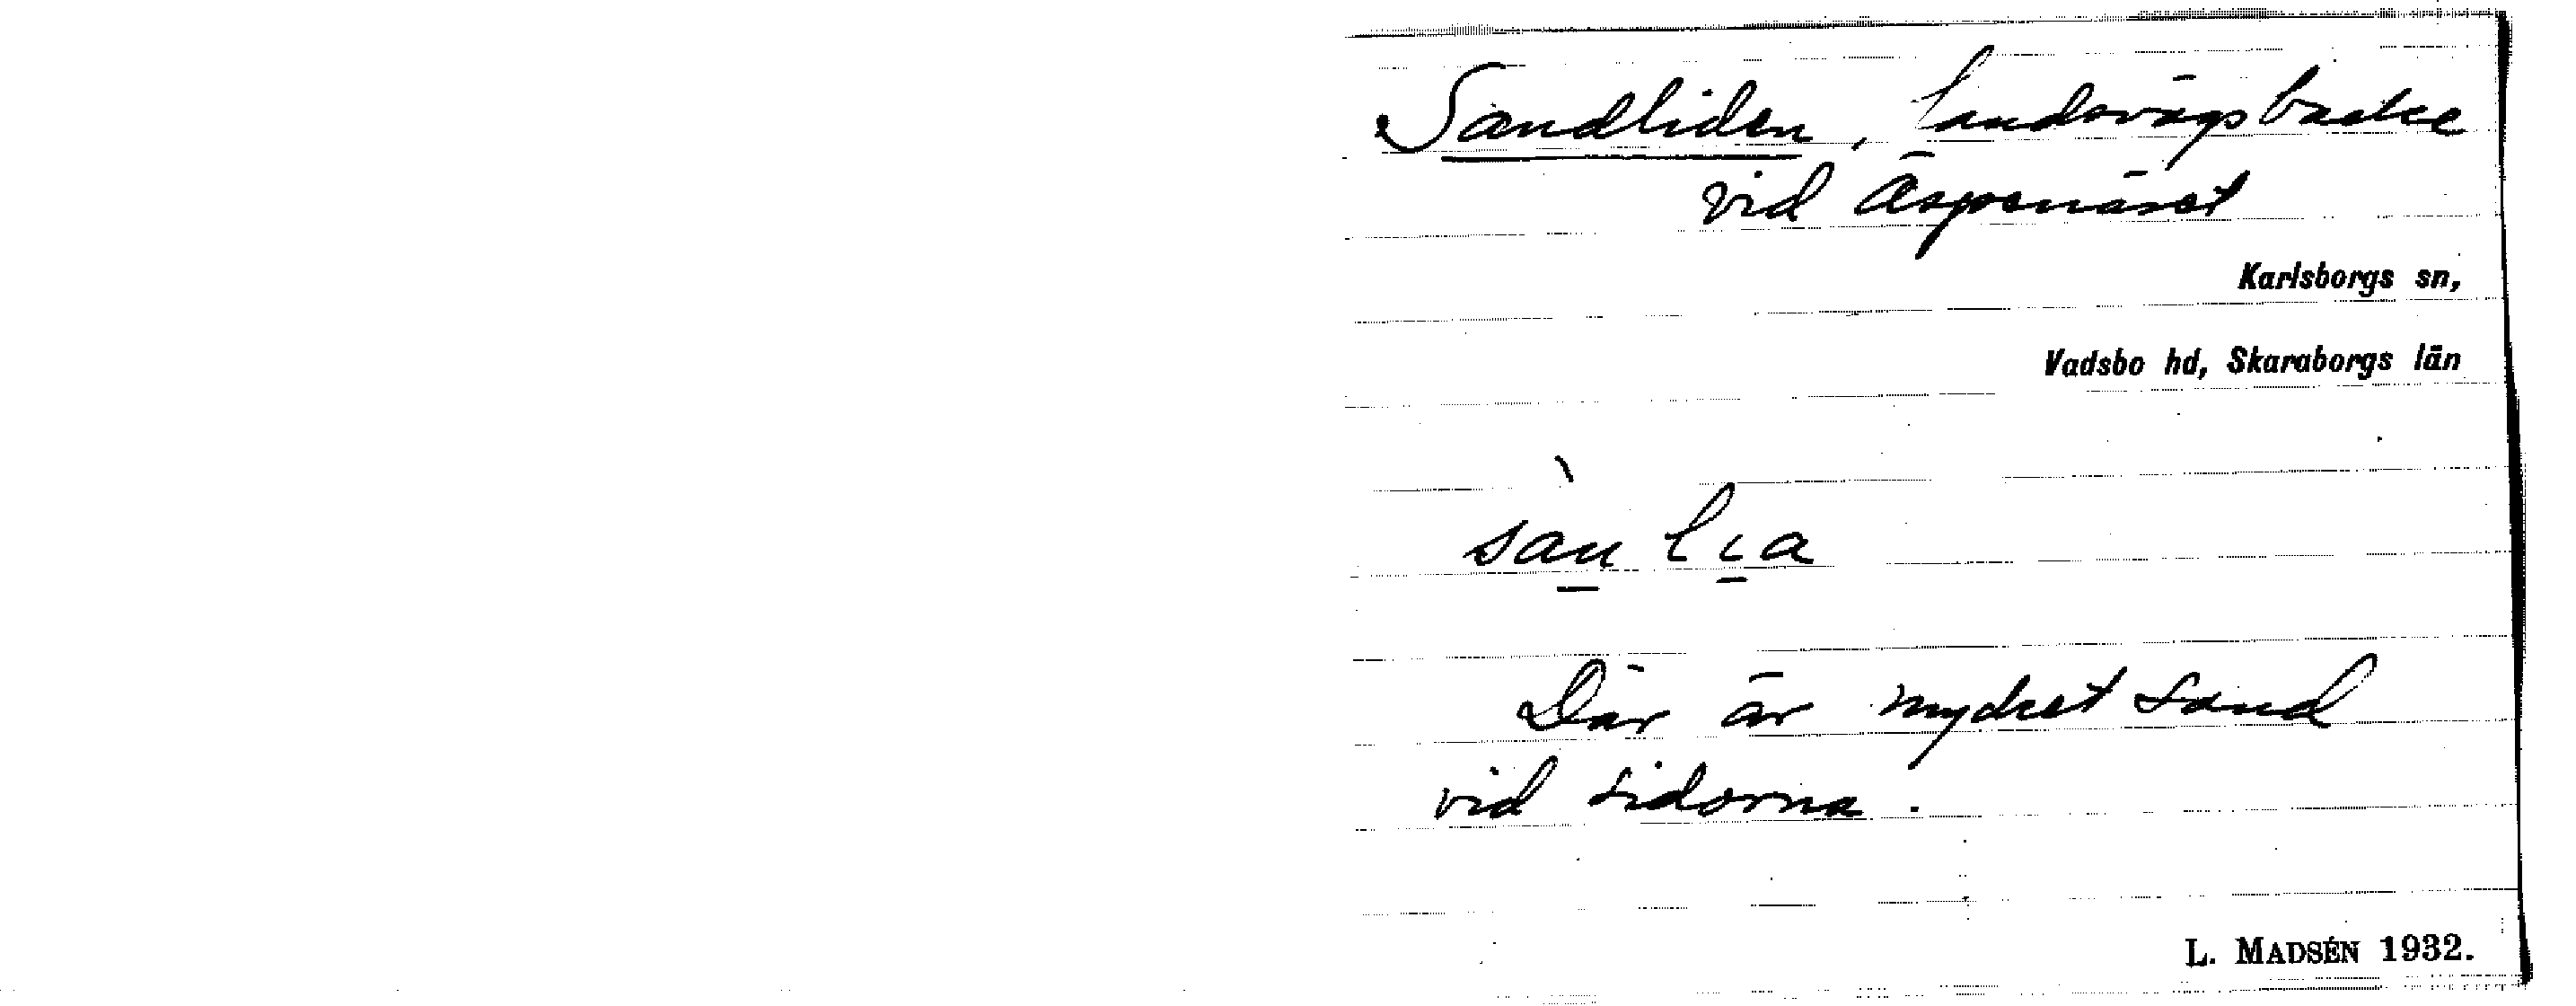 Sandliden, landsvägsbacke
vid Äspenäset
Karlsborgs sn,
Vadsbo hd, Skaraborgs län
sàn lia
Där är mycket sand
vid sidorna.
L. MADSÉN 1932.